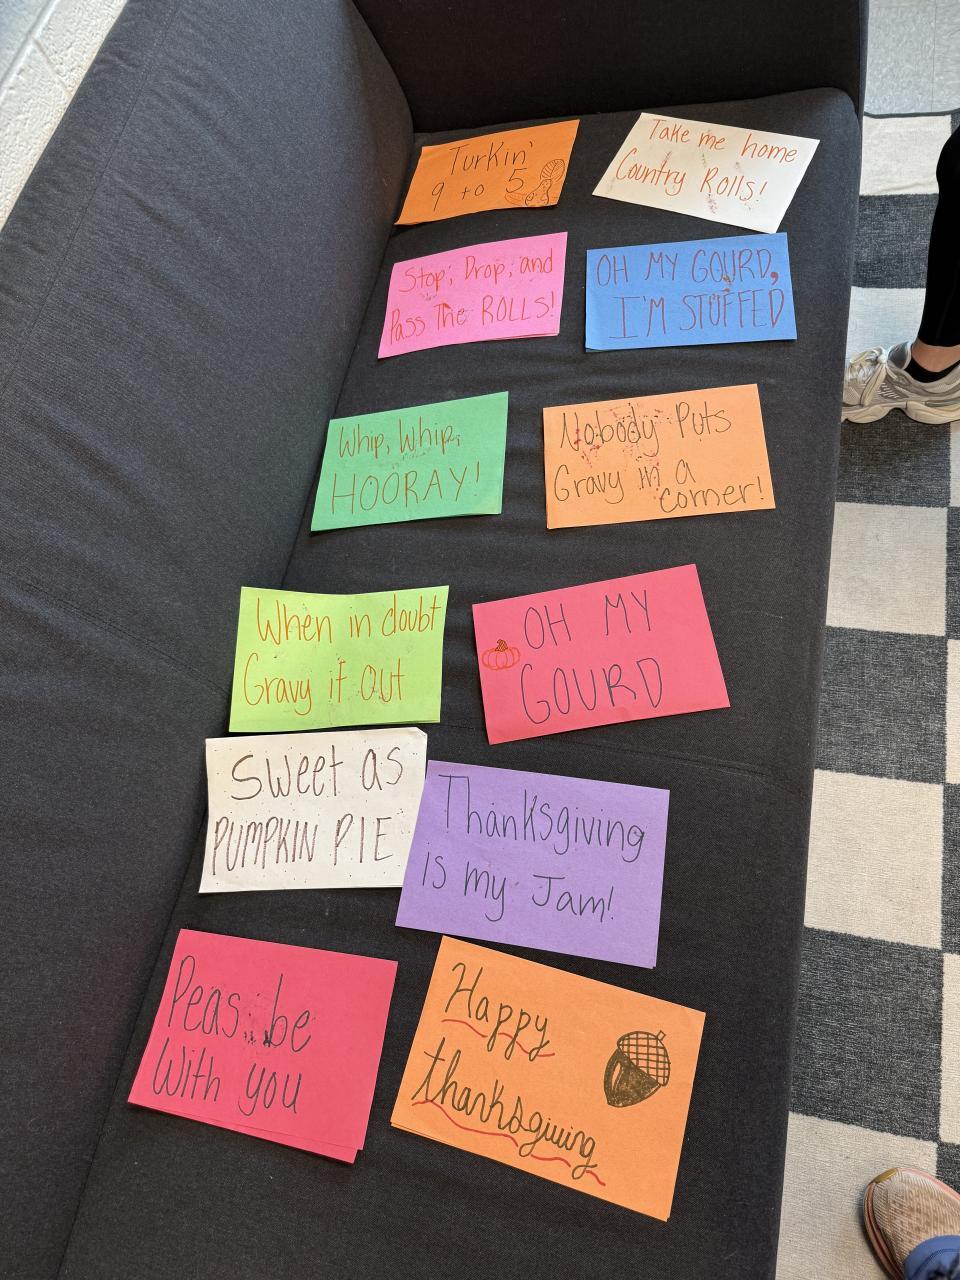 Turkin'
9 to 5
Take me home
Country Rolls!
Stop, Drop, and
Pass The ROLLS!
OH MY GOURD,
I'M STUFFED
Whip, Whip,
HOORAY!
Nobody Puts
Gravy in a
corner!
When in doubt
Gravy it out
OH MY
GOURD
Sweet as
PUMPKIN PIE
Thanksgiving
is my Jam!
Peas be
With you
Happy
thanksgiving